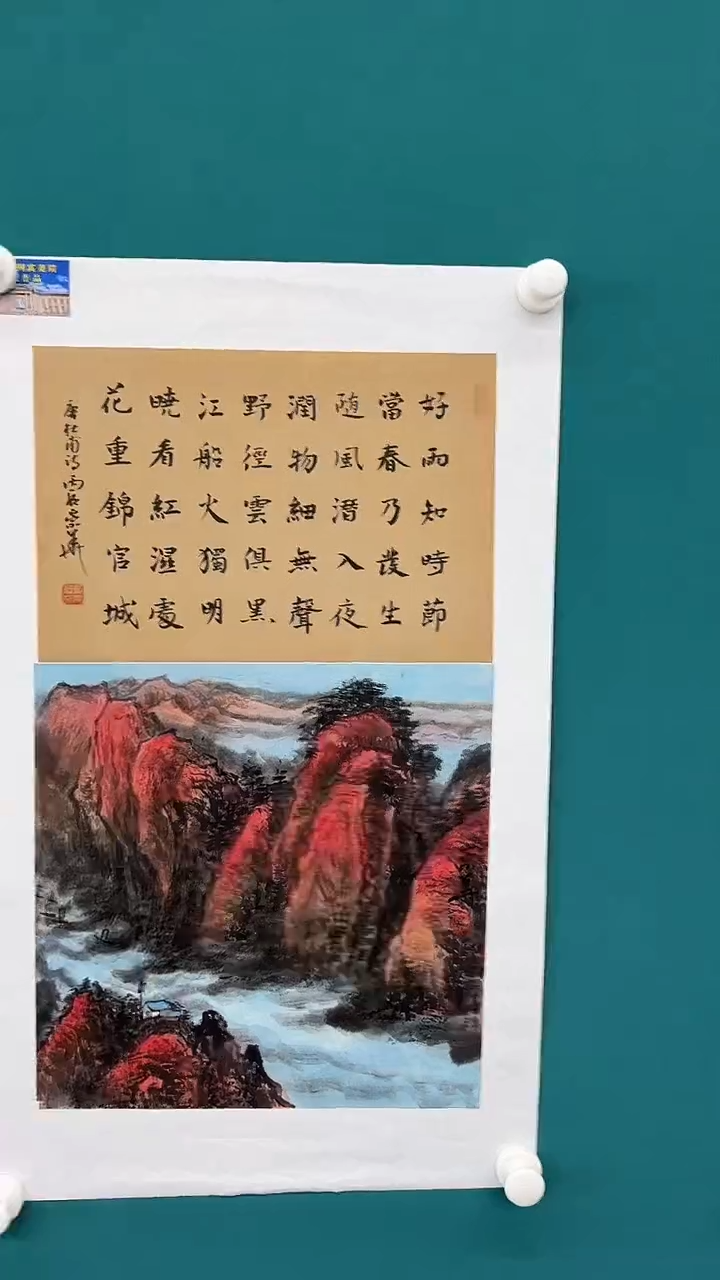 好雨知時節
當春乃發生
随風潛入夜
潤物細無聲
野徑雲俱黑
江船火獨明
曉看紅濕處
花重錦官城
唐杜甫诗